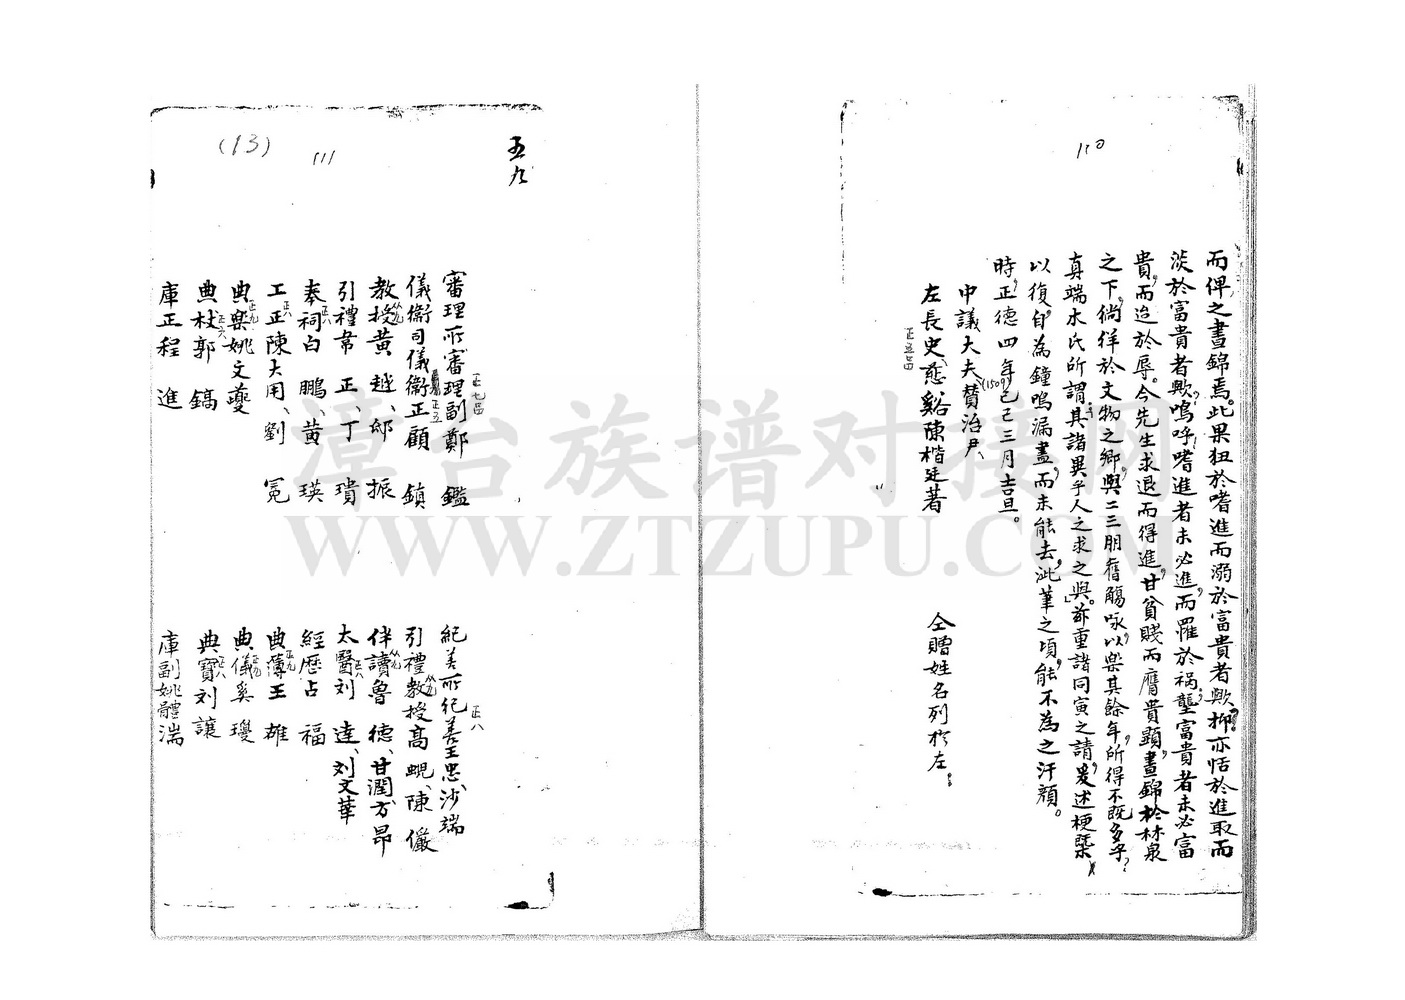 110
而俾之晝錦焉。此果狃於嗜進而溺於富貴者歟？抑亦恬於進取而
淡於富貴者歟？嗚呼！嗜進者未必進，而罹於禍；壟富貴者未必富
貴，而迨於辱。今先生求退而得進，甘貧賤而膺貴顯，晝錦於林泉
之下，徜徉於文物之鄉，與二三朋舊觴咏，以樂其餘年，所得不既多乎？
真端水氏所謂：「其諸異乎人之求之與」。茲重諸同寅之請，爰述梗槩
以復。自為鐘鳴漏盡，而未能去，泚筆之頃，能不為之汗顏。
時，正德四年(1509)己巳三月吉旦。
中議大夫贊治尹、
左長史、慈谿陳楷廷著
正五品
仝贈姓名列於左：
五九
(13)
111
審理所審理副鄭鑑 正七品
儀衛司儀衛正顧鎮 正五
教授黃越、邸振 从九
引禮韋正、丁璝
奉祠白鵬、黃瑛 正八
工正陳大用、劉冕 正八
典樂姚文夔 正九
典杖郭鎬 正六
庫正程進
紀善所紀善王忠、沙端 正八
引禮教授高䚊、陳儼 从九
伴讀魯德、甘潤、方昂 从九
太醫刘達、刘文華 正八
經歷占福
典簿王雄 正九
典儀奚瓊 正九
典寶刘讓 正八
庫副姚體湍
漳台族谱对接网
WWW.ZTZUPU.COM